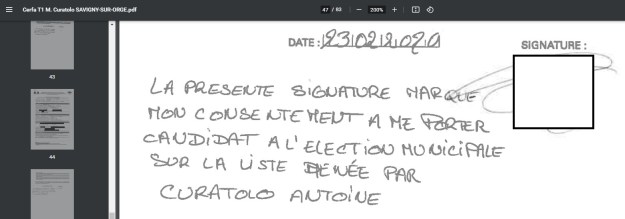 Cerfa T1 M. Curatolo SAVIGNY-SUR-ORGE.pdf
47 / 93
200%
43
44
DATE : 23022020
SIGNATURE :
LA PRESENTE SIGNATURE MARQUE
MON CONSENTEMENT A ME PORTER
CANDIDAT A L'ELECTION MUNICIPALE
SUR LA LISTE MENÉE PAR
CURATOLO ANTOINE